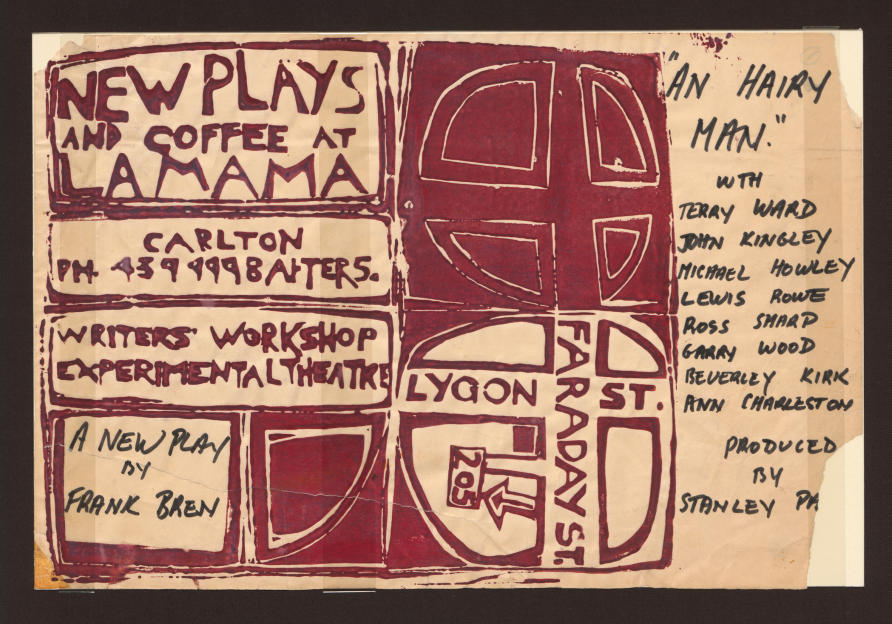 NEW PLAYS
AND COFFEE AT
LA MAMA
CARLTON
PH. 439 9998 AFTER 5.
WRITERS' WORKSHOP
EXPERIMENTAL THEATRE
A NEW PLAY
BY
FRANK BREN
LYGON ST.
FARADAY ST.
205
"AN HAIRY
MAN."
WTH
TERRY WARD
JOHN KINGLEY
MICHAEL HOWLEY
LEWIS ROWE
ROSS SHARP
GARRY WOOD
BEVERLEY KIRK
ANN CHARLESTON
PRODUCED
BY
STANLEY PA